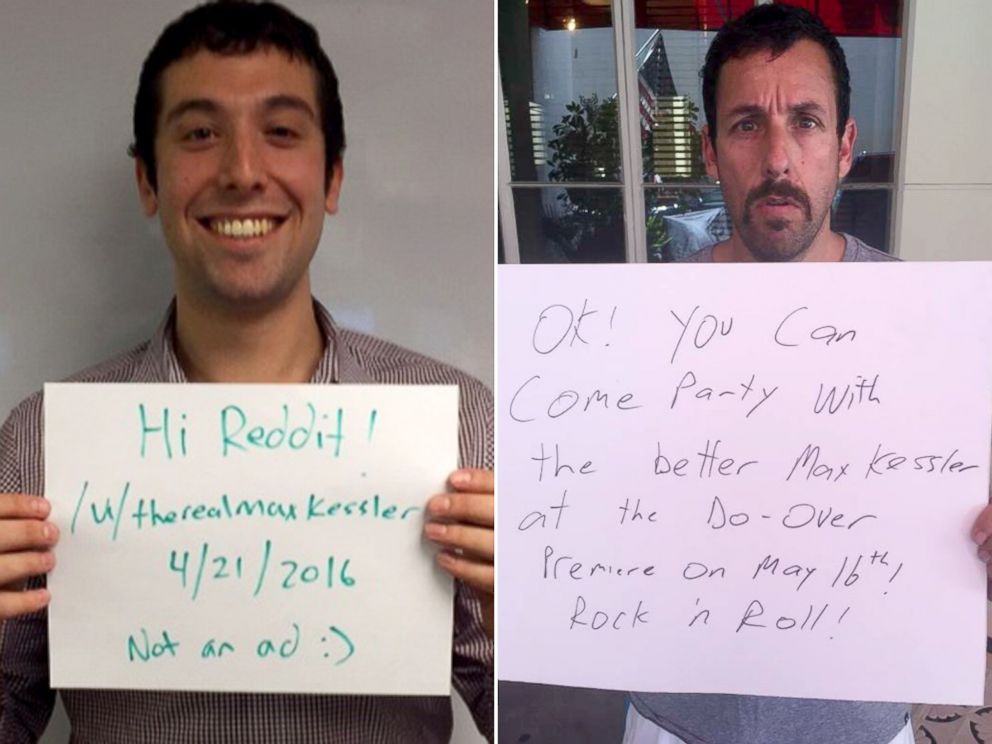 Hi Reddit!
/u/therealmaxkessler
4/21/2016
Not an ad :)
OK! You Can
Come Party With
the better Max Kessler
at the Do-Over
Premiere on May 16th!
Rock 'n Roll!